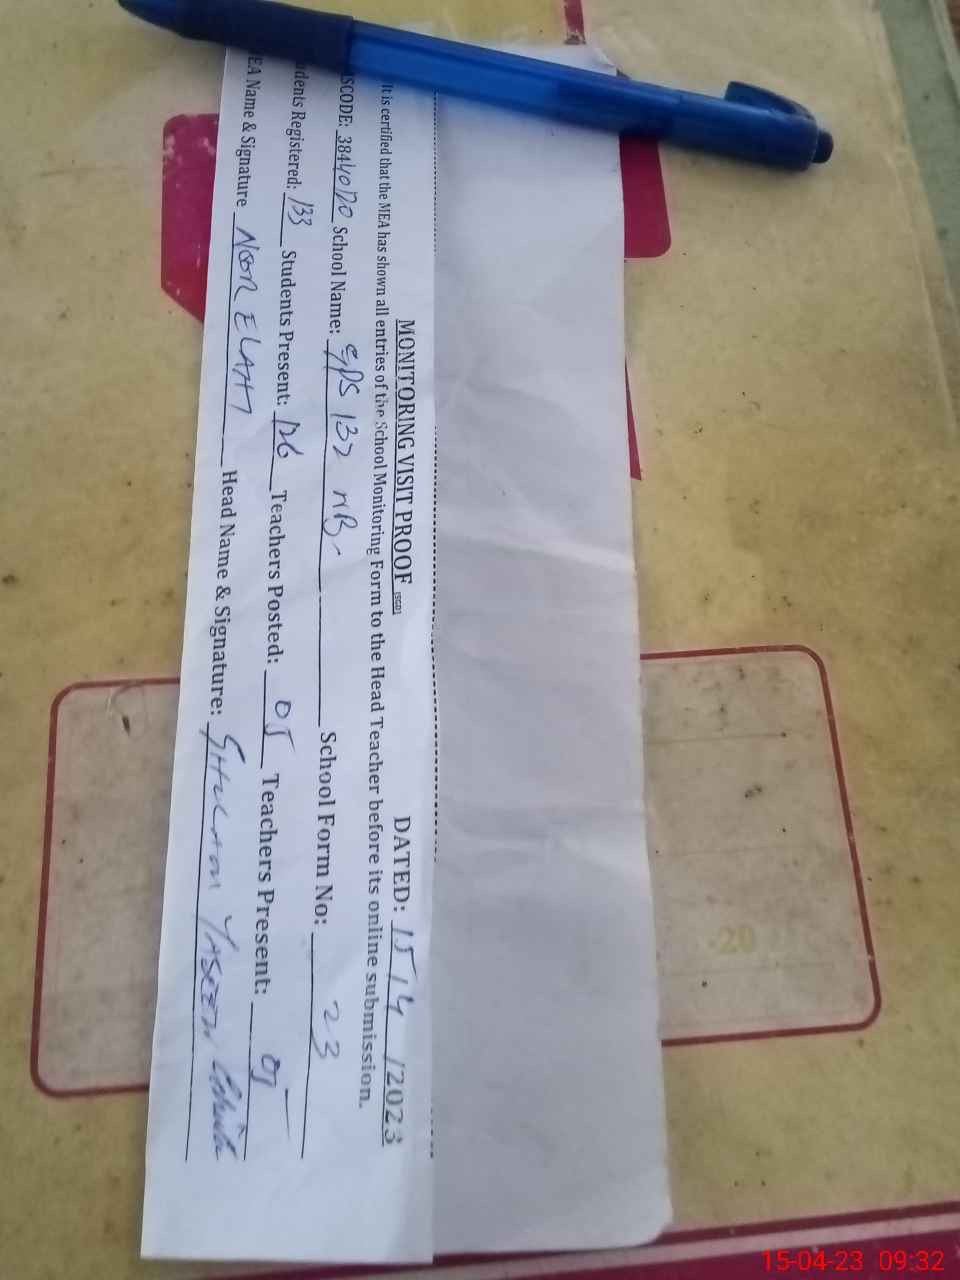 MONITORING VISIT PROOF [SGD] DATED: 15/4/2023
It is certified that the MEA has shown all entries of the School Monitoring Form to the Head Teacher before its online submission.
SCODE: School Name: GPS 132 NB. School Form No: 23
udents Registered: 133 Students Present: 126 Teachers Posted: 05 Teachers Present: 05
EA Name & Signature NOOR ELAHI Head Name & Signature: GHULAM YASEEN
-20
15-04-23 09:32